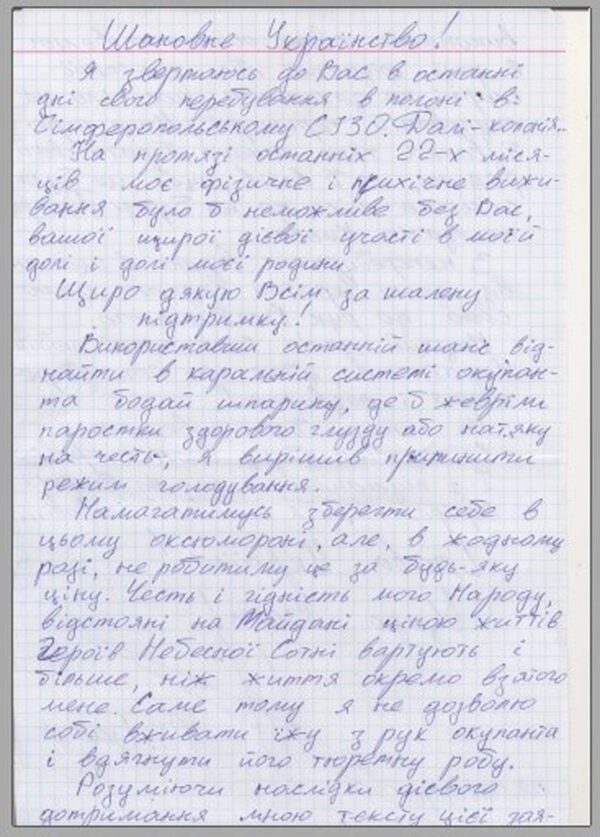 Шановне Українство!
Я звертаюсь до Вас в останні
дні свого перебування в полоні в
Сімферопольському СІЗО. Далі - колонія...
На протязі останніх 22-х міся-
ців моє фізичне і психічне вижи-
вання було б неможливе без Вас,
вашої щирої дієвої участі в моїй
долі і долі моєї родини.
Щиро дякую Всім за шалену
підтримку!
Використавши останній шанс від-
найти в каральній системі окупан-
та бодай шпарину, де б жевріли
паростки здорового глузду або натяку
на честь, я вирішив припинити
режим голодування.
Намагатимусь зберегти себе в
цьому оксюморані, але, в жодному
разі, не робитиму це за будь-яку
ціну. Честь і гідність мого Народу,
відстояні на Майдані ціною життів
Героїв Небесної Сотні вартують і
більше, ніж життя окремо взятого
мене. Саме тому я не дозволю
собі вживати їжу з рук окупанта
і вдягнути його тюремну робу.
Розуміючи наслідки дієвого
дотримання мною тексту цієї зая-